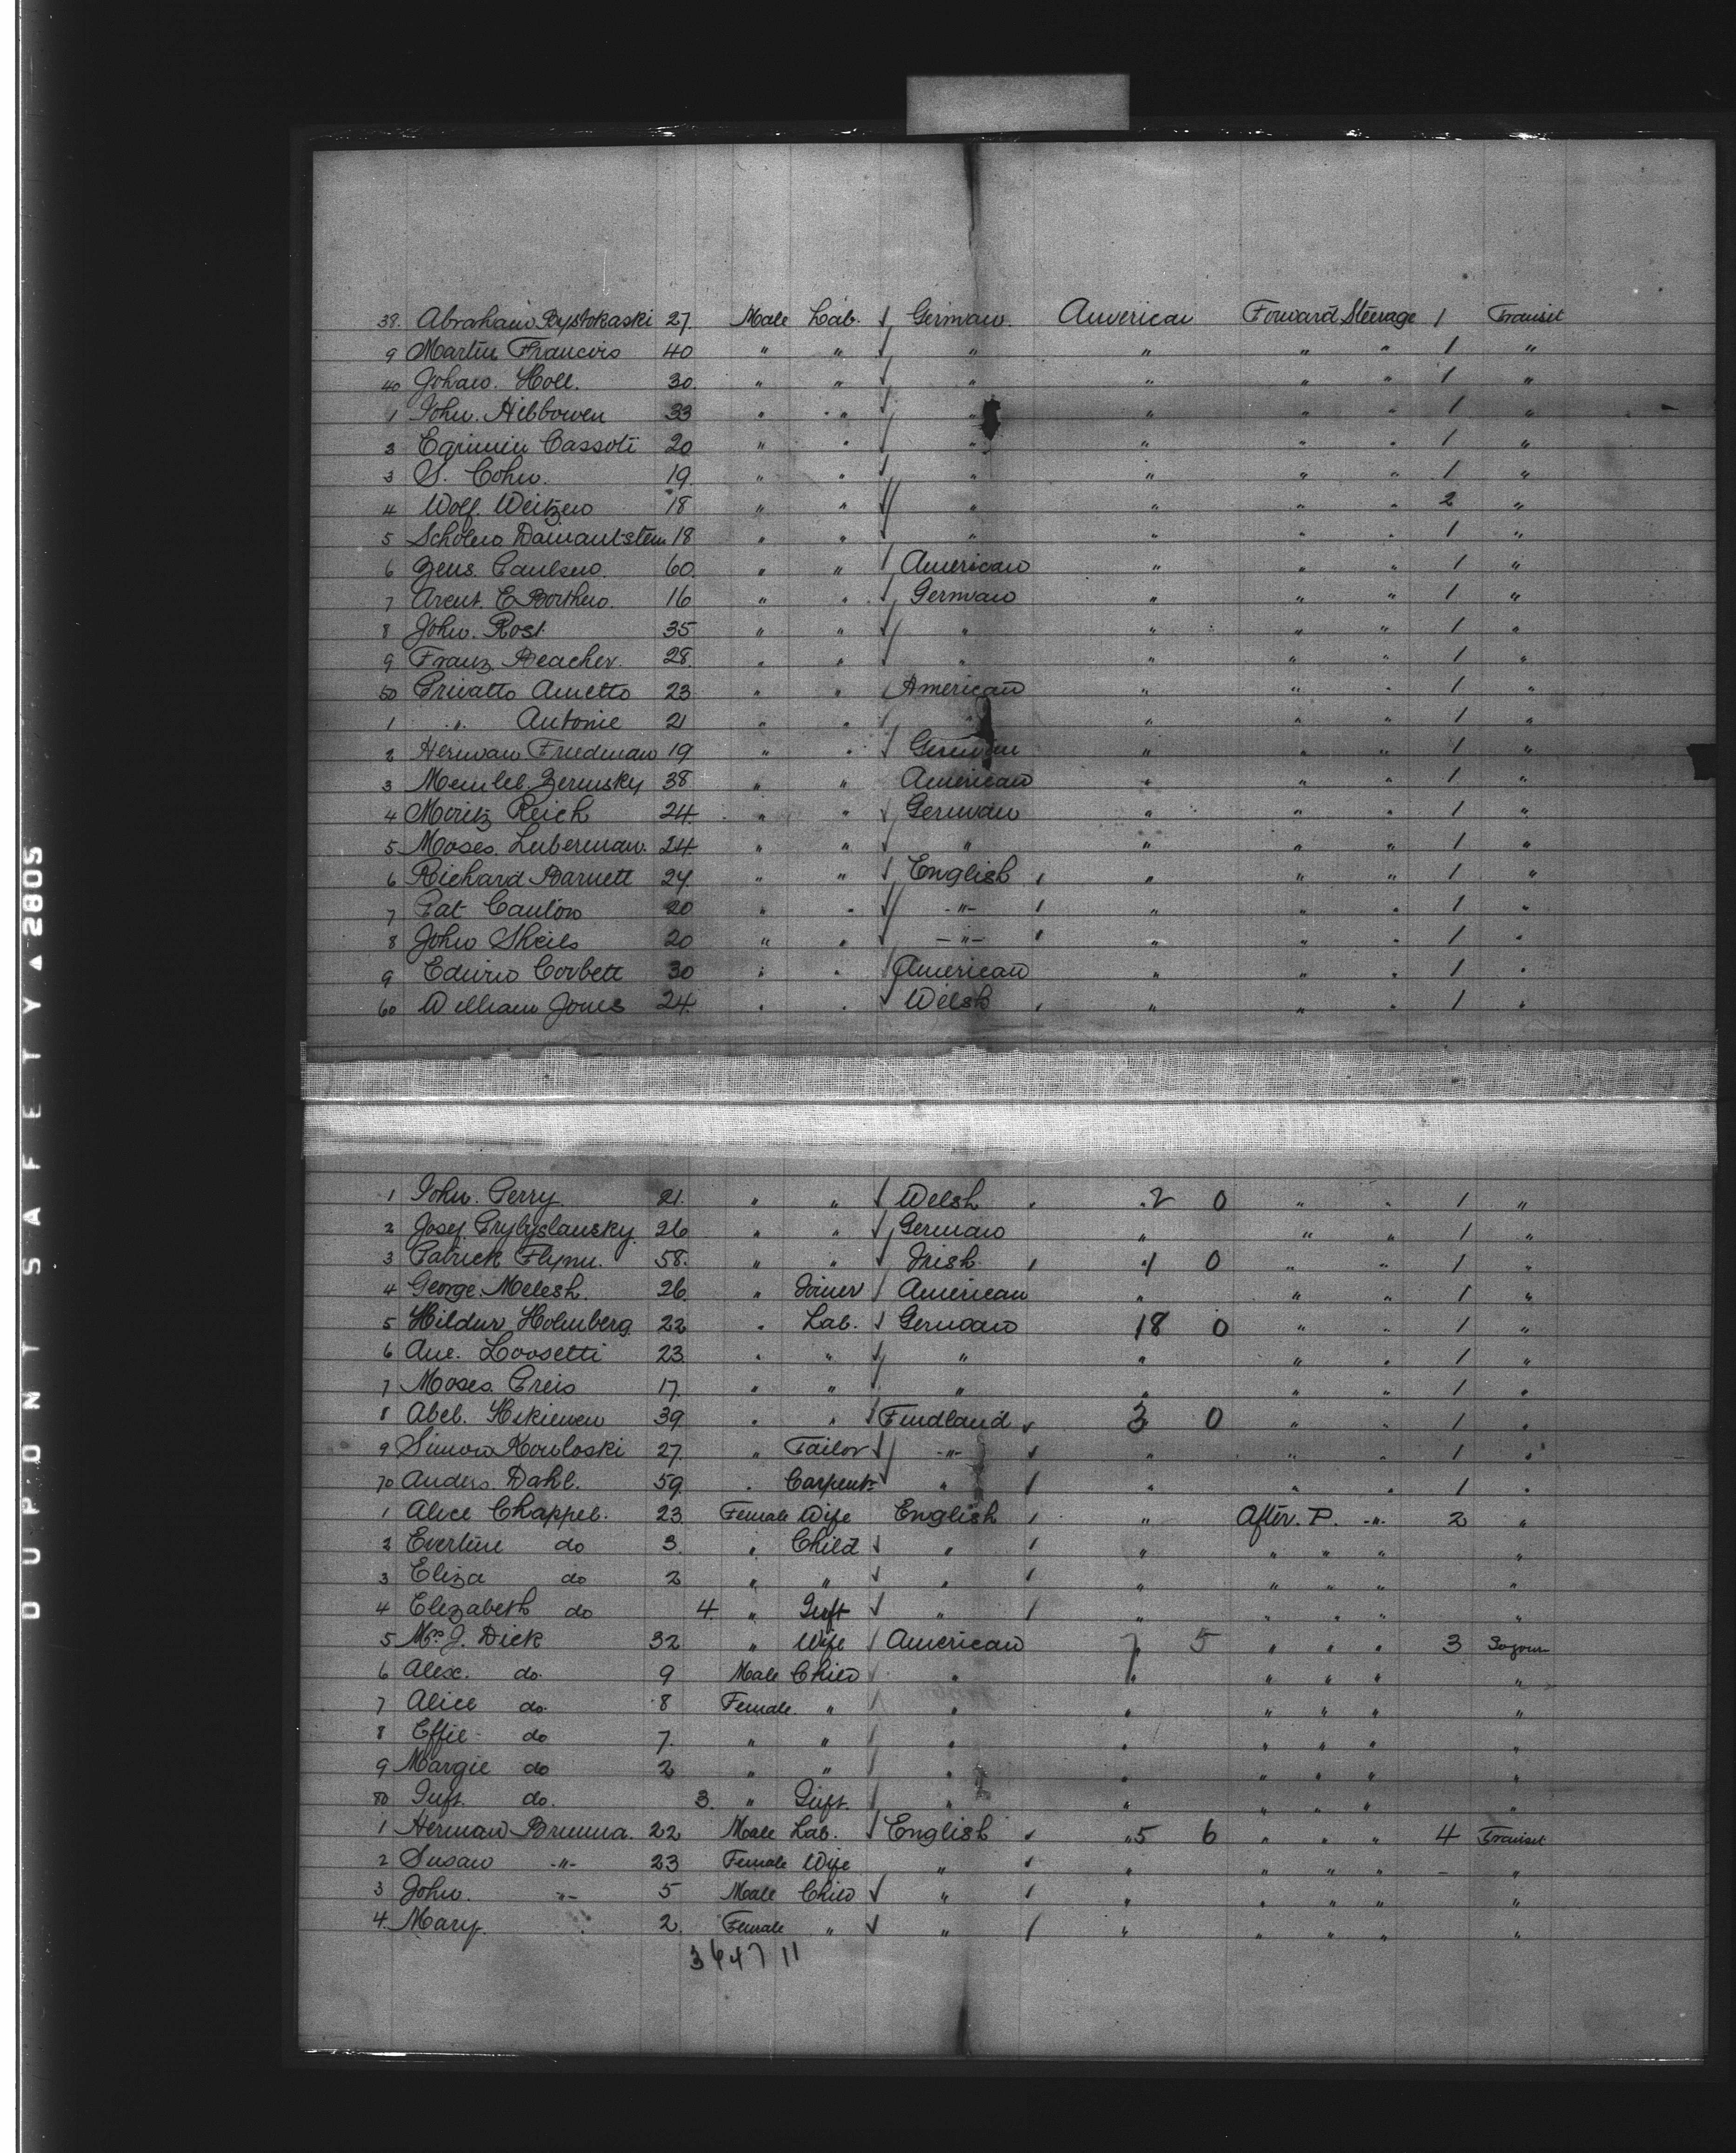 38. Abraham Bystokaski 27. Male Lab. German. American Forward Steerage 1 Transit
9 Martin Francois 40 " " " " " " 1 "
40 Johan. Holl. 30. " " " " " " 1 "
1 John. Hibbowen 33 " " " " " " 1 "
3 Cassoti 20 " " " " " " 1 "
3 S. Cohn. 19. " " " " " " 1 "
4 Wolf. Weitzen 18 " " " " " " 2 "
5 Scholem 18 " " " " " " 1 "
6 Jens. Paulsen. 60. " " American " " " 1 "
7 Arent. E. 16 " " German " " " 1 "
8 John. Rost. 35 " " " " " " 1 "
9 Franz. Beacher. 28. " " " " " " 1 "
50 Privatto Ametto 23 " " American " " " 1 "
1 " Antonie 21 " " " " " " 1 "
2 Herman Friedman 19 " " German " " " 1 "
3 Zermsky 38 " " American " " " 1 "
4 Moritz Reich 24. " " German " " " 1 "
5 Moses. Luberman. 24. " " " " " " 1 "
6 Richard Barnett 24. " " English " " " 1 "
7 Pat Canlon 20 " " -"- " " " 1 "
8 John Sheils 20 " " -"- " " " 1 "
9 Edwin Corbett 30 " " American " " " 1 "
60 William Jones 24. " " Welsh " " " 1 "
1 John. Perry. 21. " " Welsh " 2 0 " " 1 "
2 Josef. Prybyslansky. 26 " " German " " " 1 "
3 Patrick Flynn. 58. " " Irish. " 1 0 " " 1 "
4 George. Melesh. 26. " Joiner American " " " 1 "
5 Hildur Holmberg 22 " Lab. German 18 0 " " 1 "
6 Ane. Loosetti 23. " " " " " " 1 "
7 Moses. Preis 17. " " " " " " 1 "
8 Abel. 39. " " Findland 3 0 " " 1 "
9 Simon Kowloski 27. " Tailor -"- " " " 1 "
70 Anders. Dahl. 59. " Carpentr " " " " 1 "
1 Alice Chappel. 23. Female Wife English " After. P. -"- 2 "
2 Everline do 3. " Child " " " " " "
3 Eliza do 2 " " " " " " " "
4 Elizabeth do 4. " Inft " " " " " "
5 Mrs. J. Dick 32 " Wife American 7 5 " " " 3 Sojour
6 Alex. do. 9 Male Child " " " " " "
7 Alice do. 8 Female. " " " " " " "
8 Effie do 7. " " " " " " " "
9 Margie do 2 " " " " " " " "
80 Inft. do. 3. " Inft. " " " " " "
1 Herman Brumma. 22 Male Lab. English " 5 6 " " " 4 Transit
2 Susan -"- 23 Female Wife " " " " " - "
3 John. "- 5 Male Child " " " " " "
4. Mary. 2. Female " " " " " " "
3 6 4 7 11
DUPONT SAFETY ▲ 2805